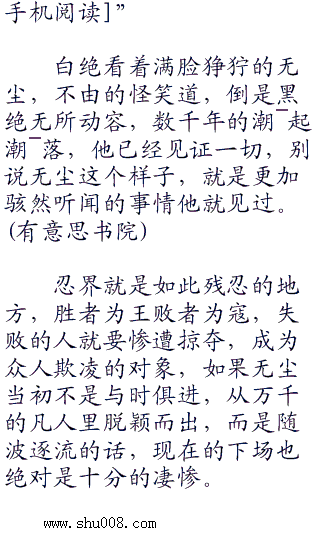 手机阅读]”
白绝看着满脸狰狞的无
尘，不由的怪笑道，倒是黑
绝无所动容，数千年的潮¯起
潮¯落，他已经见证一切，别
说无尘这个样子，就是更加
骇然听闻的事情他就见过。
(有意思书院)
忍界就是如此残忍的地
方，胜者为王败者为寇，失
败的人就要惨遭掠夺，成为
众人欺凌的对象，如果无尘
当初不是与时俱进，从万千
的凡人里脱颖而出，而是随
波逐流的话，现在的下场也
绝对是十分的凄惨。
www.shu008.com